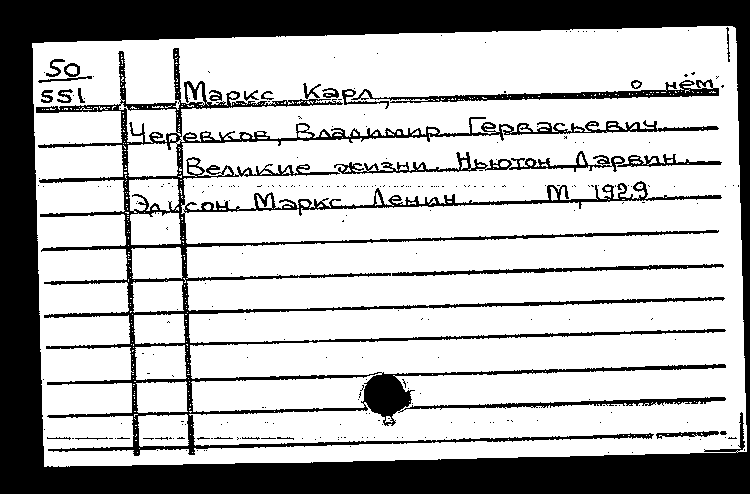 50
551
Маркс Карл, о нём.
Черевков, Владимир Гервасьевич
Великие жизни. Ньютон. Дарвин.
Эдисон. Маркс. Ленин. М, 1929